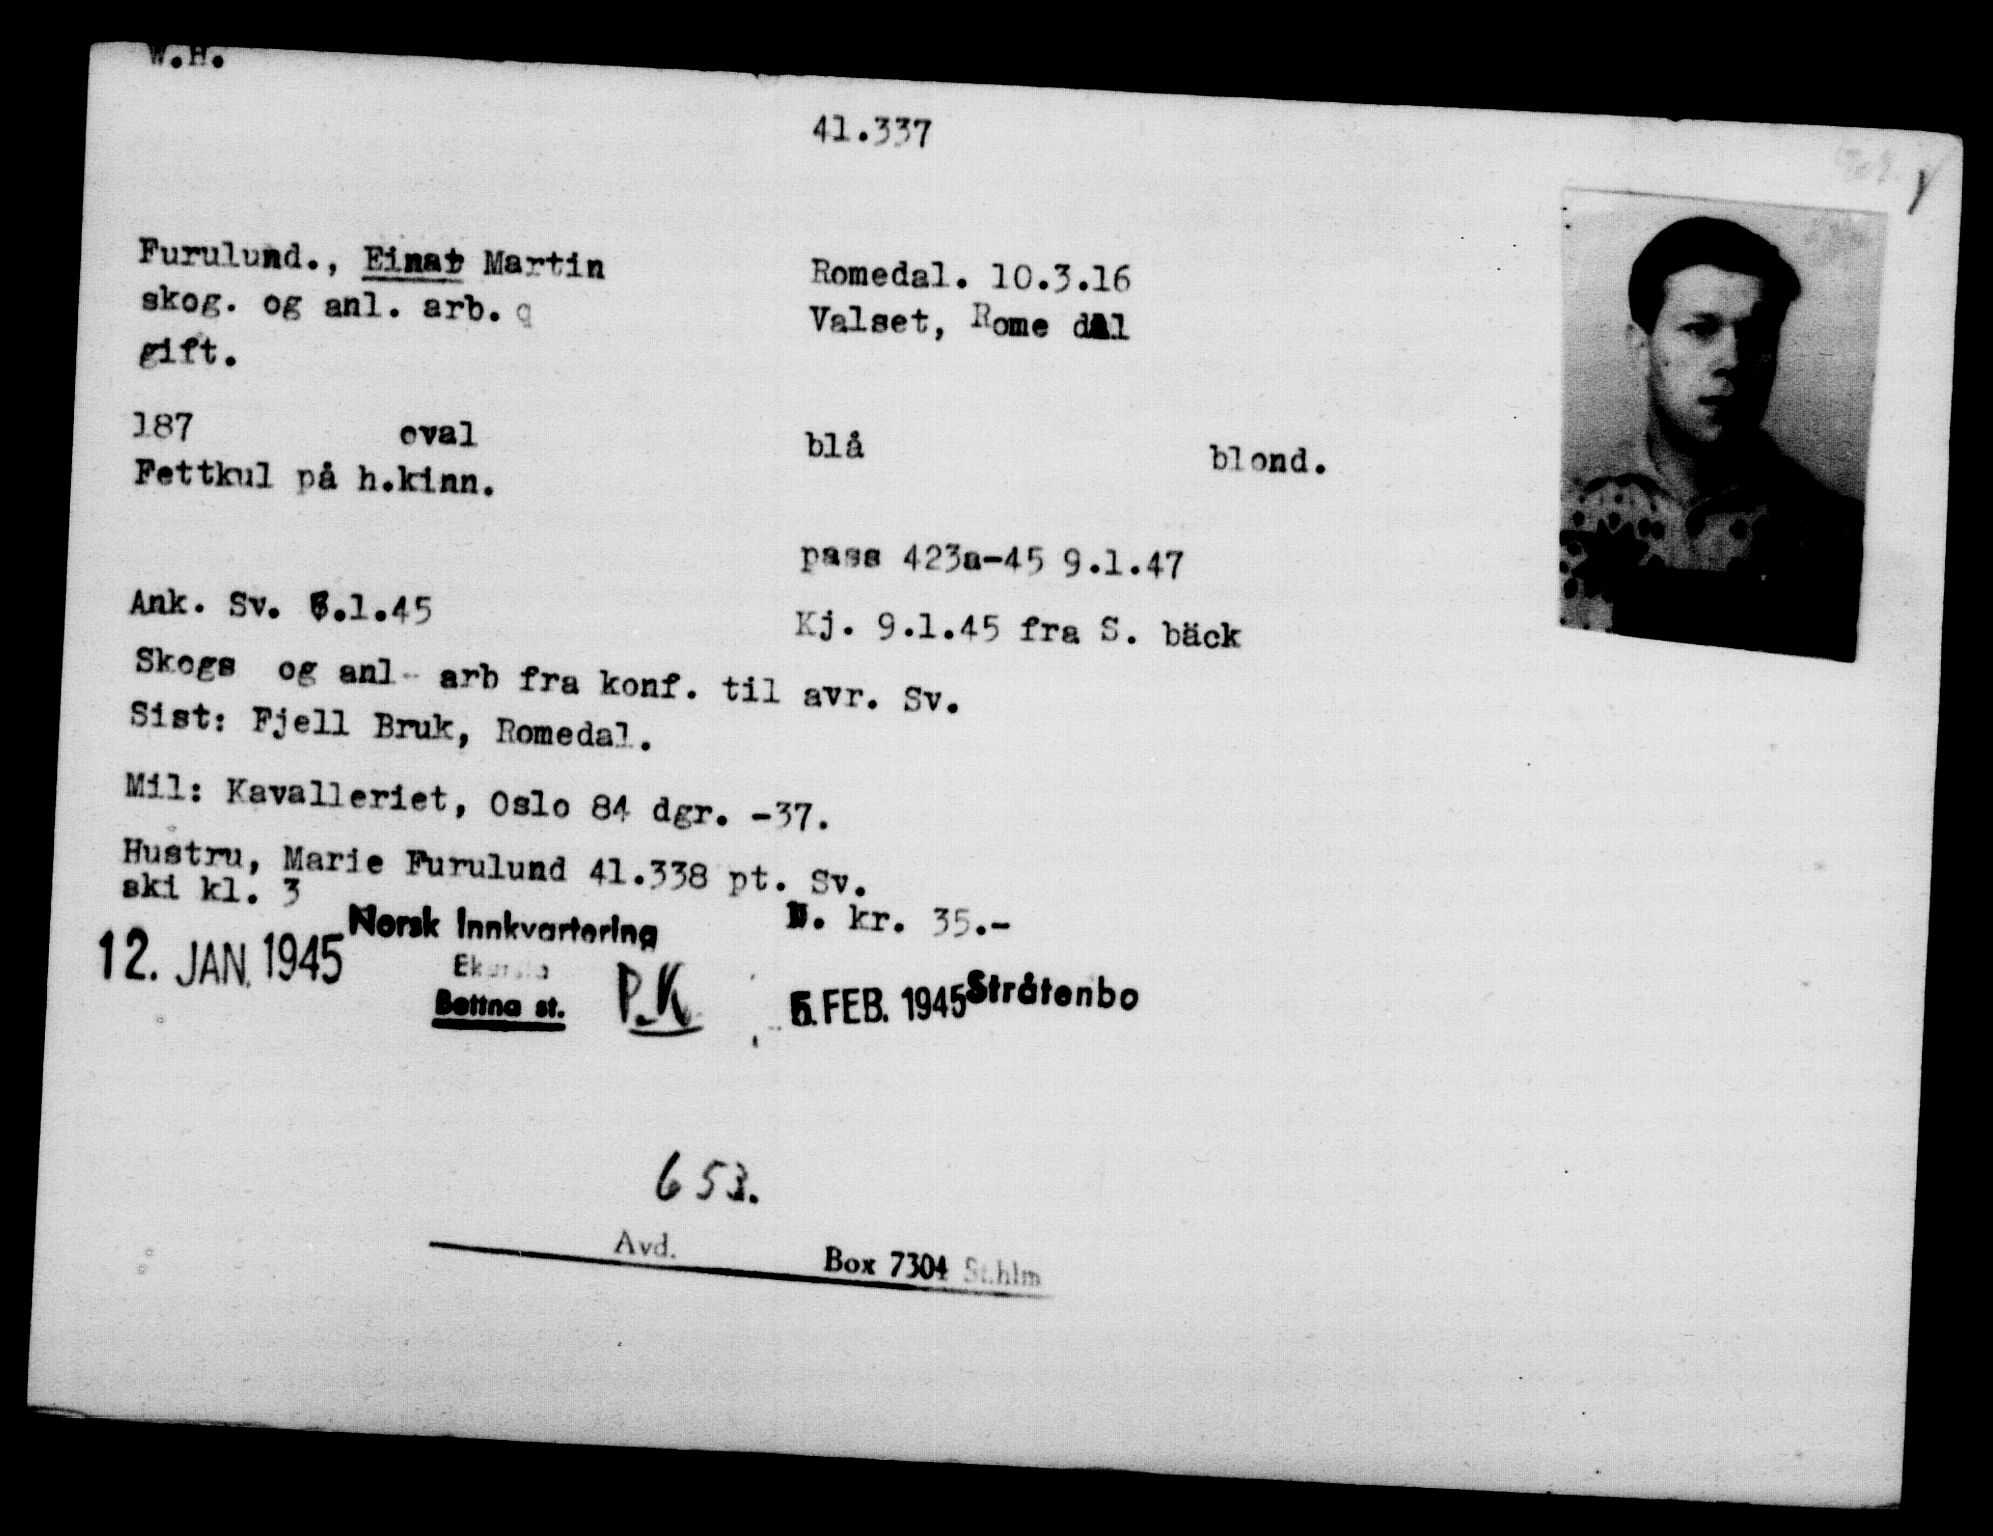 W.H.
41.337
Furulund., Einar Martin
Romedal. 10.3.16
skog. og anl. arb.
Valset, Rome dal
gift.
187 oval blå blond.
Fettkul på h.kinn.
pass 423a-45 9.1.47
Ank. Sv. .1.45
Kj. 9.1.45 fra S. bäck
Skogs og anl- arb fra konf. til avr. Sv.
Sist: Fjell Bruk, Romedal.
Mil: Kavalleriet, Oslo 84 dgr. -37.
Hustru, Marie Furulund 41.338 pt. Sv.
ski kl. 3
N. kr. 35.-
12. JAN. 1945 Norsk Innkvartering
Bettna st.
P.K
5. FEB. 1945 Stråtenbo
653.
Avd. Box 7304 St.hlm